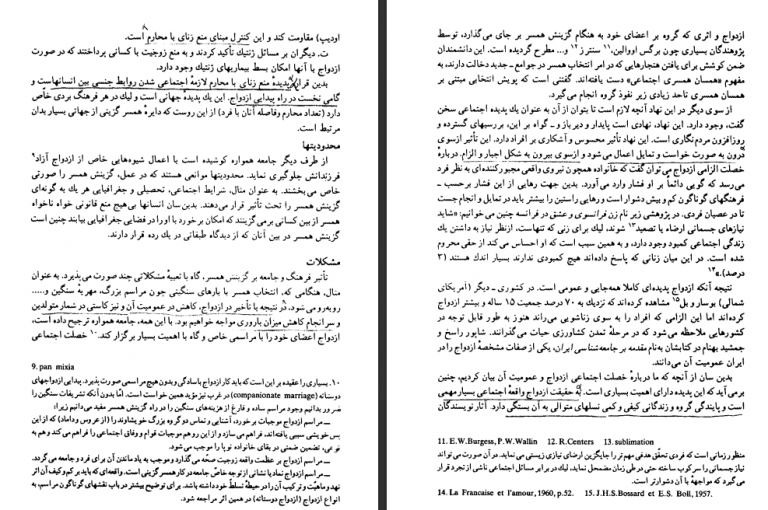 اودیپ) مقاومت کند و این کنترل مبنای منع زنای با محارم است.
ت. دیگران بر مسائل ژنتیک تأکید کردند و به منع زوجیت با کسانی پرداختند که در صورت
ازدواج با آنها امکان بسط بیماریهای ژنتیک وجود دارد.
بدین قرار، پدیدهٔ منع زنای با محارم لازمهٔ اجتماعی شدن روابط جنسی بین انسانهاست و
گامی نخست در راه پیدایی ازدواج. این یك پدیدهٔ جهانی است و لیك در هر فرهنگ بردی خاص
دارد (تعداد محارم وفاصله آنان با فرد) از این روست که دایرهٔ همسر گزینی از جهاتی بسیار بدان
مرتبط است.
محدودیتها
از طرف دیگر جامعه همواره کوشیده است با اعمال شیوه‌هایی خاص از ازدواج آزاد⁹
فرزندانش جلوگیری نماید. محدودیتها موانعی هستند که در عمل، گزینش همسر را صورتی
خاص می‌بخشند. به عنوان مثال، شرایط اجتماعی، تحصیلی و جغرافیایی هر یك به گونه‌ای
گزینش همسر را تحت تأثیر قرار می‌دهند. بدین‌سان انسانها بی‌هیچ منع قانونی خواه ناخواه
همسر از بین کسانی برمی‌گزینند که امکان برخورد با او را در فضایی جغرافیایی بیابند چنین است
گزینش همسر در بین آنان که از دیدگاه طبقاتی در یك رده قرار دارند.
مشکلات
تأثیر فرهنگ و جامعه بر گزینش همسر، گاه با تعبیهٔ مشکلاتی چند صورت می‌پذیرد. به عنوان
مثال، هنگامی که، انتخاب همسر با بارهای سنگینی چون مراسم بزرگ، مهریهٔ سنگین و.....
روبه‌رو می‌شود، در نتیجه با تأخیر در ازدواج، کاهش در عمومیت آن و نیز کاستی در شمار متولدین
و سرانجام کاهش میزان باروری مواجه خواهیم بود. با این همه، جامعه همواره ترجیح داده است،
ازدواج اعضای خود را با مراسمی خاص و گاه با اهمیت بسیار برگزار کند.¹⁰ خصلت اجتماعی
9. pan mixia
۱۰. بسیاری را عقیده بر این است که باید کار ازدواج با سادگی وبدون هیچ مراسمی صورت پذیرد. پیدایی ازدواجهای
دوستانه (companionate marriage) در غرب نیز مؤید همین خواست است. امّا بدون آنکه تشریفات سنگین را
ضرور بدانیم وجود مراسم ساده و فارغ از هزینه‌های سنگین را در راه گزینش همسر مفید می‌دانیم زیرا:
ــ مراسم ازدواج موجبات برخورد، آشنایی و تماس دو گروه بزرگ خویشاوند را (از عروس و داماد) که از این
پس خویشی سببی یافته‌اند، فراهم می‌سازد و از این رو هم موجبات قوام و وفاق اجتماعی را فراهم می‌کند و هم به
نوعی، تضمین ضمنی در بقای خانواده نو پا را موجب می‌شود.
ــ مراسم ازدواج بر عظمت واقعه زوجیت صحّه می‌گذارد و موجب به یاد ماندن آن برای فرد و جامعه می‌گردد.
ــ مراسم ازدواج نماد یا نشانی از توجه خاصّ جامعه در کار همسر گزینی است. واقعه‌ای که باید بر کم و کیف آن اثر
نهد و ماهیّت و ترکیب آن را در حیطهٔ تسلط خود داشته باشد. برای توضیح بیشتر در باب نقشهای گوناگون مراسم، به
انواع ازدواج (ازدواج دوستانه) در همین اثر مراجعه شود.
ازدواج و اثری که گروه بر اعضای خود به هنگام گزینش همسر بر جای می‌گذارد، توسط
پژوهندگان بسیاری چون برگس اووالین،¹¹ سنترز¹² و... مطرح گردیده است. این دانشمندان
ضمن کوشش برای یافتن هنجارهایی که در امر انتخاب همسر در جوامع ـ جدید دخالت دارند، به
مفهوم «همسان همسری اجتماعی» دست یافته‌اند. گفتنی است که پویش انتخابی مبتنی بر
همسان همسری تاحد زیادی زیر نفوذ گروه انجام می‌گیرد.
از سوی دیگر در این نهاد آنچه لازم است تا بتوان از آن به عنوان یك پدیده‌ای اجتماعی سخن
گفت، وجود دارد. این نهاد، نهادی است پایدار و دیرباز و ـ گواه بر این، بررسیهای گسترده و
روزافزون مردم‌نگاری است. این نهاد تأثیر محسوس و آشکاری بر افراد دارد. این تأثیر ازسوی
درون به صورت خواست و تمایل اعمال می‌شود و ازسوی بیرون به شکل اجبار و الزام. دربارهٔ
خصلت الزامی ازدواج می‌توان گفت که خانواده همچون نیروی واقعی مجبورکننده‌ای به نظر فرد
می‌رسد که گویی دائماً بر او فشار وارد می‌آورد. بدین جهت رهایی از این فشار برحسب ـ
فرهنگهای گوناگون کم و بیش دشوار است و رهایی راستین را بیشتر باید در تمایل و انجام جست
تا در عصیان فردی. در پژوهشی زیر نام زن فرانسوی و عشق در فرانسه چنین می‌خوانیم: «شاید
نیازهای جسمانی ارضاء یا تصعید¹³ شوند، لیك برای زنی که تنهاست، ازنظر نیاز به داشتن یك
زندگی اجتماعی کمبود وجود دارد، و به همین سبب است که او احساس می‌کند از حقی محروم
شده است. در این میان زنانی که پاسخ داده‌اند هیچ کمبودی ندارند بسیار اندك هستند (۳
درصد).»¹⁴
نتیجه آنکه ازدواج پدیده‌ای کاملا همه‌جایی و عمومی است. در کشوری ـ دیگر (آمریکای
شمالی) بوسار و بل¹⁵ مشاهده کرده‌اند که نزدیك به ۷۰ درصد جمعیت ۱۵ ساله و بیشتر ازدواج
کرده‌اند اما این الزامی که افراد را به سوی زناشویی می‌راند هنوز به طور قابل توجه در
کشورهایی ملاحظه می‌شود که در مرحلهٔ تمدن کشاورزی حیات می‌گذرانند. شاپور راسخ و
جمشید بهنام در کتابشان به‌نام مقدمه بر جامعه‌شناسی ایران، یکی از صفات مشخصهٔ ازدواج را در
ایران عمومیت آن می‌دانند.
بدین سان از آنچه که ما دربارهٔ خصلت اجتماعی ازدواج و عمومیت آن بیان کردیم، چنین
برمی‌آید که این پدیده دارای اهمیت بسیاری است. به حقیقت ازدواج واقعهٔ اجتماعی بسیار مهمی
است و پایندگی گروه و زندگانی کیفی و کمی نسلهای متوالی به آن بستگی دارد. آثار نویسندگان
11. E.W.Burgess, P.W.Wallin 12. R.Centers 13. sublimation
منظور زمانی است که فردی تحقق هدفی مهم‌تر را جایگزین ارضای نیازی زیستی می‌نماید. در آن صورت می‌تواند
نیاز جسمانی را سرکوب ساخته حتی در طی زمان مضمحل نماید، لیك در برابر مسائل اجتماعی ناشی از تجرد قرار
می‌گیرد که مواجههٔ با آن دشوارتر است.
14. La Francaise et l'amour, 1960, p.52. 15. J.H.S.Bossard et E.S. Boll, 1957.